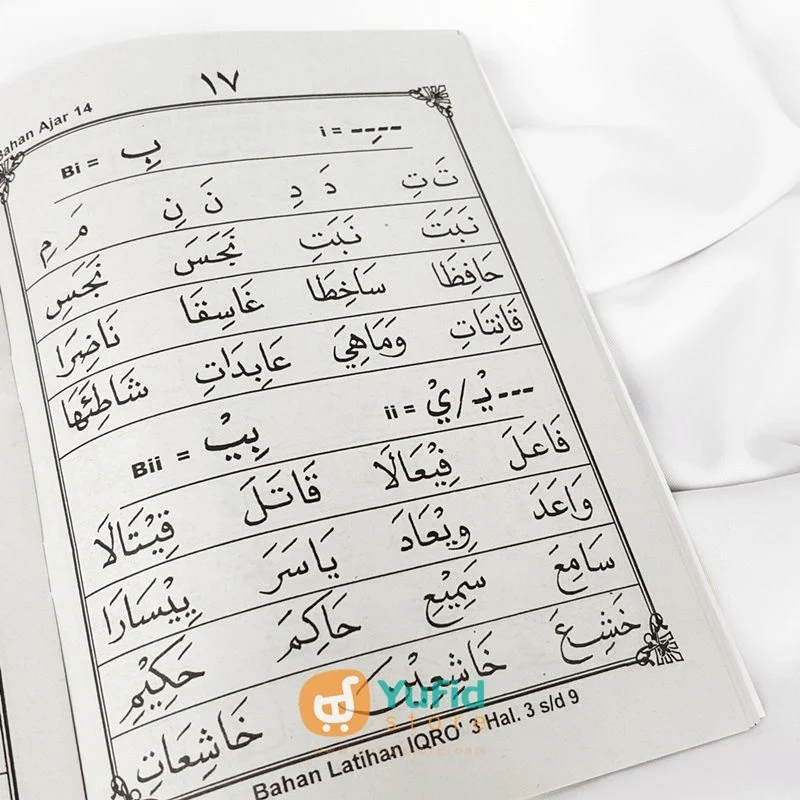 ١٧
Bahan Ajar 14
i = ---ِ--- بِ = Bi
تَ تِ دَ دِ نَ نِ مَ مِ
نَبَتَ نَبَتِ نَجَسَ نَجَسِ
حَافِظَا سَاخِطَا غَاسِقَا نَاضِرَا
قَانِتَاتِ وَمَاهِيَ عَابِدَاتِ شَاطِئَهَا
ii = ---يْـ/يْ بِيْ = Bii
فَاعَلَ فِيْعَالَا قَاتَلَ قِيْتَالَا
وَاعَدَ وِيْعَادَ يَاسَرَ يِيْسَارَا
سَامِعَ سَمِيْعِ حَاكِمَ حَكِيْمِ
خَشِعَ خَاشِعِيْنَ خَاشِعَاتِ
Yufid
store
Bahan Latihan IQRO' 3 Hal. 3 s/d 9